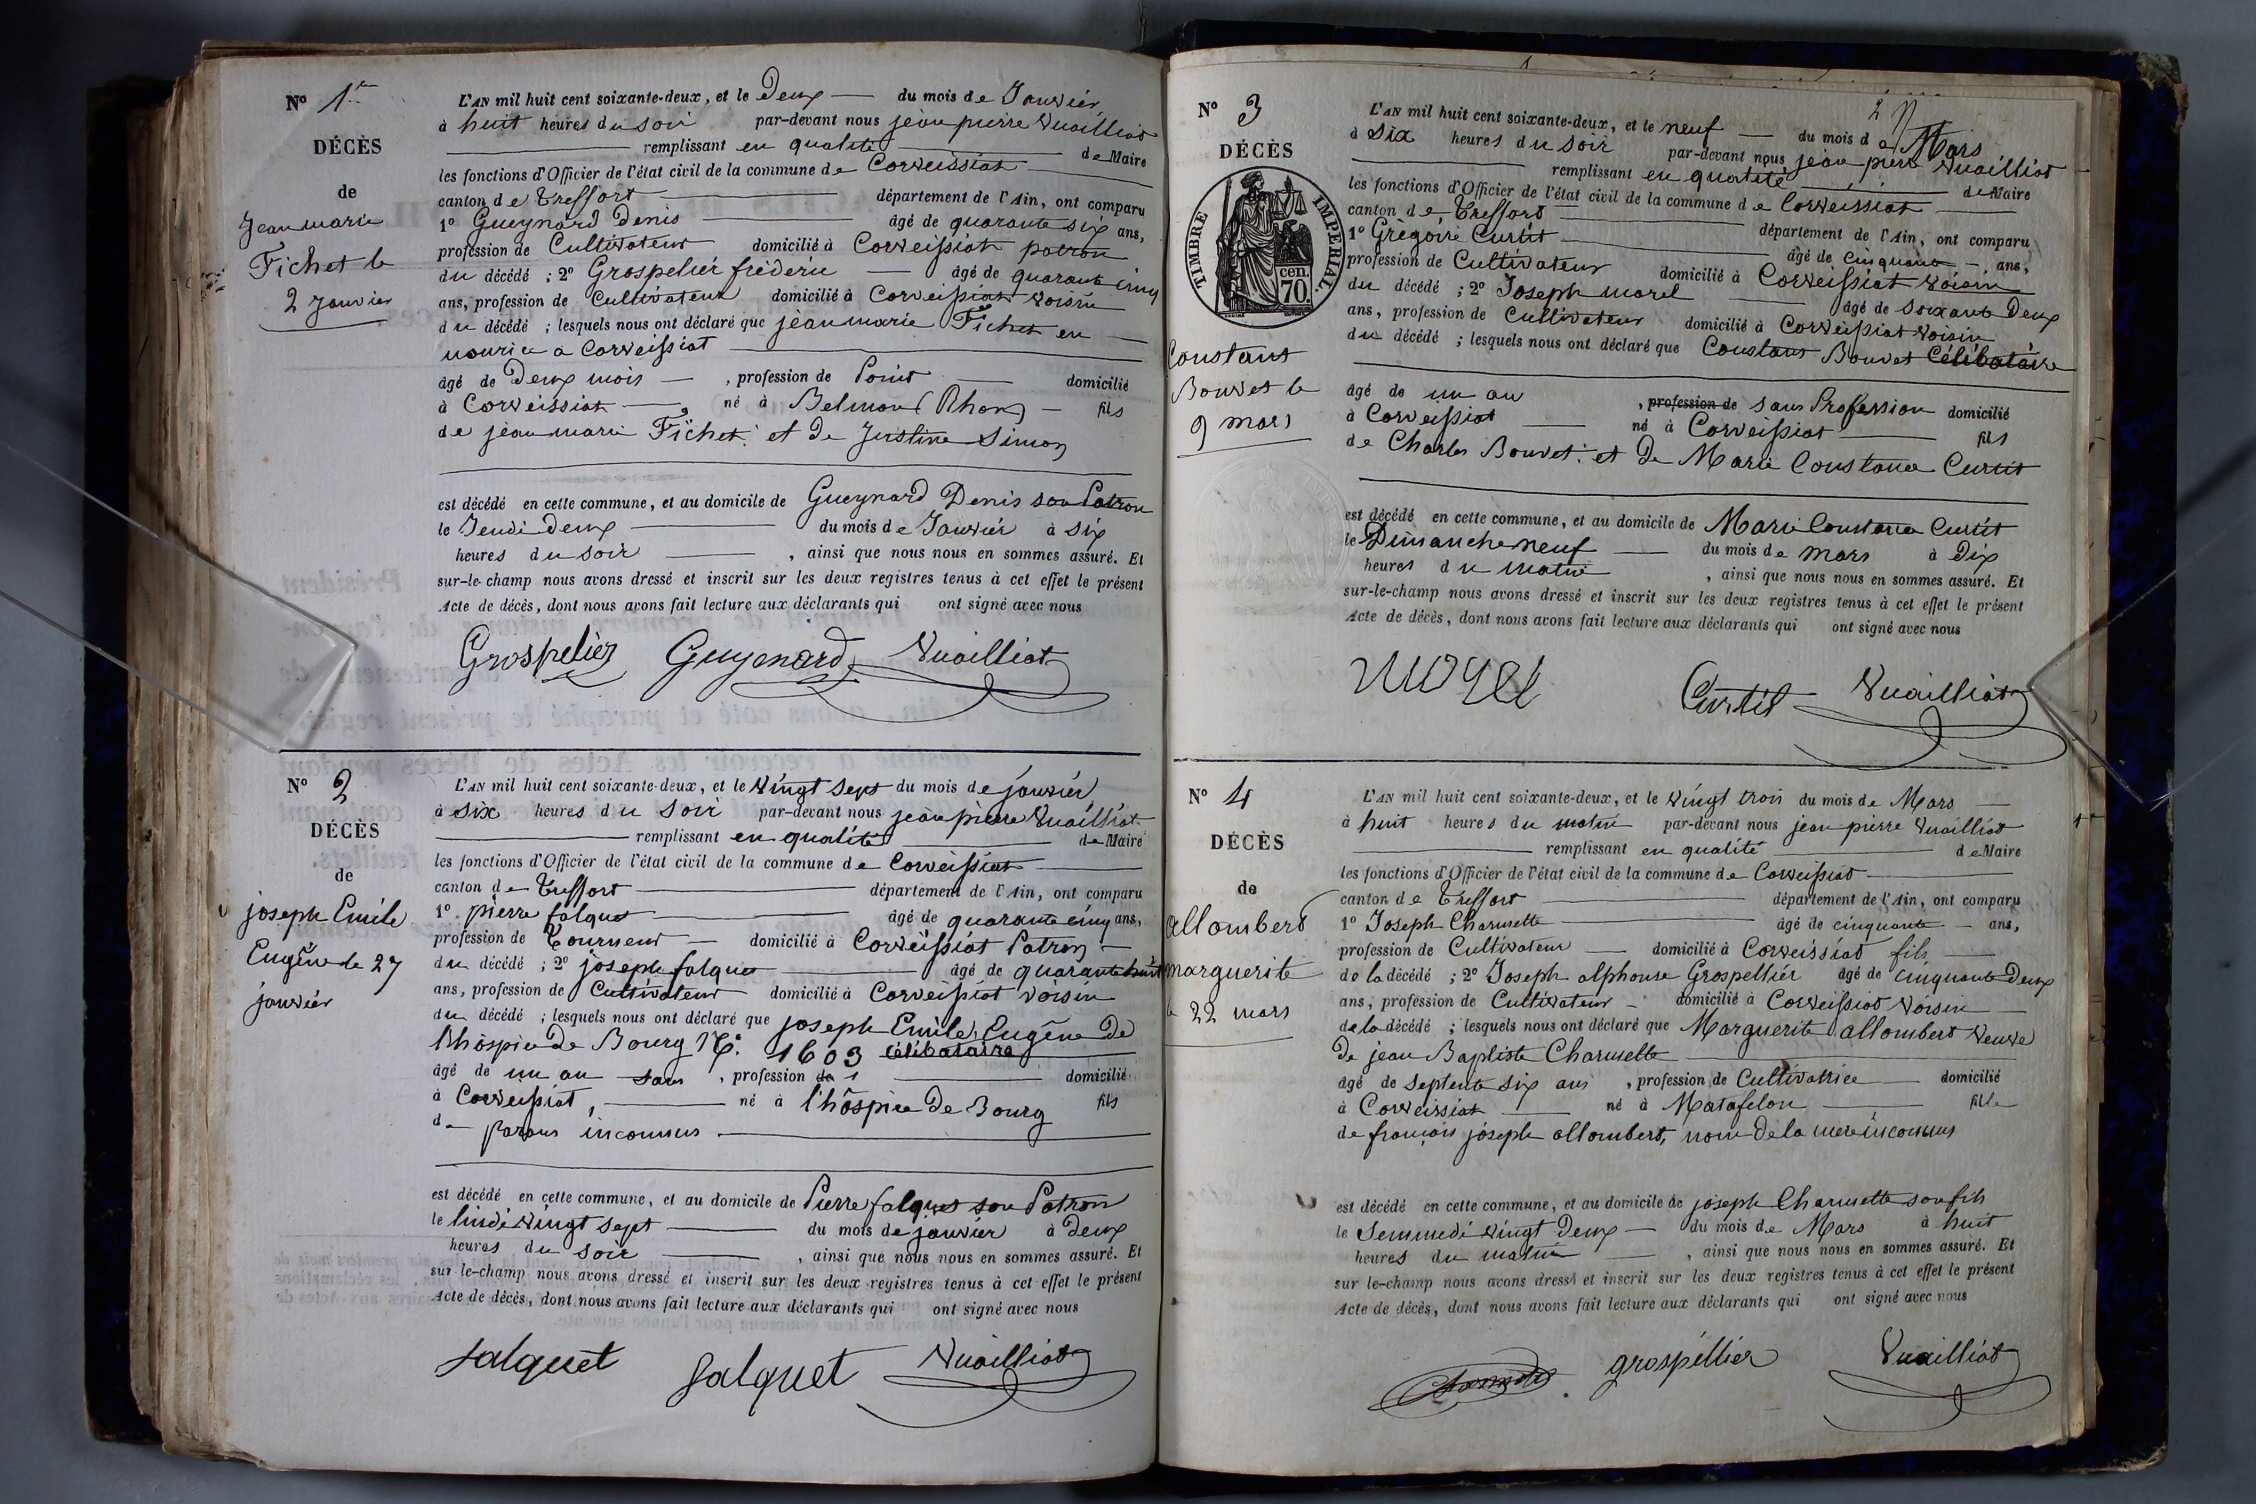 Nº 1er
DÉCÈS
de
Jean marie
Fichet le
2 Janvier
L'AN mil huit cent soixante-deux, et le Deux du mois de Janvier
à huit heures du soir par-devant nous jean pierre Vuailliat
remplissant en qualité de Maire
les fonctions d'Officier de l'état civil de la commune de Corveissiat
canton de Treffort département de l'Ain, ont comparu
1º Gueynard Denis âgé de quarante six ans,
profession de Cultivateur domicilié à Corveissiat patron
du décédé ; 2º Grospelier fréderic âgé de quarante cinq
ans, profession de Cultivateur domicilié à Corveissiat voisin
du décédé ; lesquels nous ont déclaré que jean marie Fichet en
nourice a Corveissiat
âgé de Deux mois , profession de Point domicilié
à Corveissiat , né à Belmont Rhone fils
de jean marie Fichet et de Justine Simon
est décédé en cette commune, et au domicile de Gueynard Denis son Patron
le Jeudi deux du mois de Janvier à six
heures du soir , ainsi que nous nous en sommes assuré. Et
sur-le-champ nous avons dressé et inscrit sur les deux registres tenus à cet effet le présent
Acte de décès, dont nous avons fait lecture aux déclarants qui ont signé avec nous
Grospelier Guyenard Vuailliat
Nº 2
DÉCÈS
de
joseph Emile
Eugêne le 27
janvier
L'AN mil huit cent soixante-deux, et le vingt sept du mois de janvier
à six heures du soir par-devant nous jean pierre Vuailliat
remplissant en qualité de Maire
les fonctions d'Officier de l'état civil de la commune de Corveissiat
canton de Treffort département de l'Ain, ont comparu
1º pierre falquet âgé de quarante cinq ans,
profession de Tourneur domicilié à Corveissiat Patron
du décédé ; 2º joseph falquet âgé de quarante huit
ans, profession de Cultivateur domicilié à Corveissiat voisin
du décédé ; lesquels nous ont déclaré que joseph Emile Eugêne De
l'hôspice De Bourg Nº. 1603 célibataire
âgé de un an sans , profession de domicilié
à Corveissiat, né à l'hôspice De Bourg fils
de parans inconnus
est décédé en cette commune, et au domicile de Pierre falquet son Patron
le lindi vingt sept du mois de janvier à Deux
heures du soir , ainsi que nous nous en sommes assuré. Et
sur-le-champ nous avons dressé et inscrit sur les deux registres tenus à cet effet le présent
Acte de décès, dont nous avons fait lecture aux déclarants qui ont signé avec nous
falquet falquet Vuailliat
2
Nº 3
DÉCÈS
TIMBRE IMPÉRIAL.
cen.
70.
Constant
Bouvet le
9 mars
L'AN mil huit cent soixante-deux, et le neuf du mois de Mars
à six heures du soir par-devant nous jean pierre Vuailliat
remplissant en qualité de Maire
les fonctions d'Officier de l'état civil de la commune de Corveissiat
canton de Treffort département de l'Ain, ont comparu
1º Grégoire Curtit âgé de cinquante ans,
profession de Cultivateur domicilié à Corveissiat voisin
du décédé ; 2º Joseph morel âgé de soixante Deux
ans, profession de Cultivateur domicilié à Corveissiat voisin
du décédé ; lesquels nous ont déclaré que Constant Bouvet célibataire
âgé de un an , profession de sans Profession domicilié
à Corveissiat né à Corveissiat fils
de Charles Bouvet et De Marie Constance Curtit
est décédé en cette commune, et au domicile de Marie Constance Curtit
le Dimanche neuf du mois de mars à dix
heures du matin , ainsi que nous nous en sommes assuré. Et
sur-le-champ nous avons dressé et inscrit sur les deux registres tenus à cet effet le présent
Acte de décès, dont nous avons fait lecture aux déclarants qui ont signé avec nous
morel Curtit Vuailliat
Nº 4
DÉCÈS
de
allombert
marguerite
le 22 mars
L'AN mil huit cent soixante-deux, et le vingt trois du mois de Mars
à huit heures du matin par-devant nous jean pierre Vuailliat
remplissant en qualité de Maire
les fonctions d'Officier de l'état civil de la commune de Corveissiat
canton de Treffort département de l'Ain, ont comparu
1º Joseph Charnette âgé de cinquante ans,
profession de Cultivateur domicilié à Corveissiat fils
de la décédé ; 2º Joseph alphonse Grospellier âgé de cinquante Deux
ans, profession de Cultivateur domicilié à Corveissiat voisin
de la décédé ; lesquels nous ont déclaré que Marguerite allombert veuve
De jean Baptiste Charnette
âgé de septente six ans , profession de Cultivatrice domicilié
à Corveissiat né à Matafelon fille
de françois joseph allombert, nom De la mere inconnus
est décédé en cette commune, et au domicile de joseph Charnette son fils
le Semmedi vingt Deux du mois de Mars à huit
heures du matin , ainsi que nous nous en sommes assuré. Et
sur le-champ nous avons dressé et inscrit sur les deux registres tenus à cet effet le présent
Acte de décès, dont nous avons fait lecture aux déclarants qui ont signé avec nous
grospéllier Vuailliat